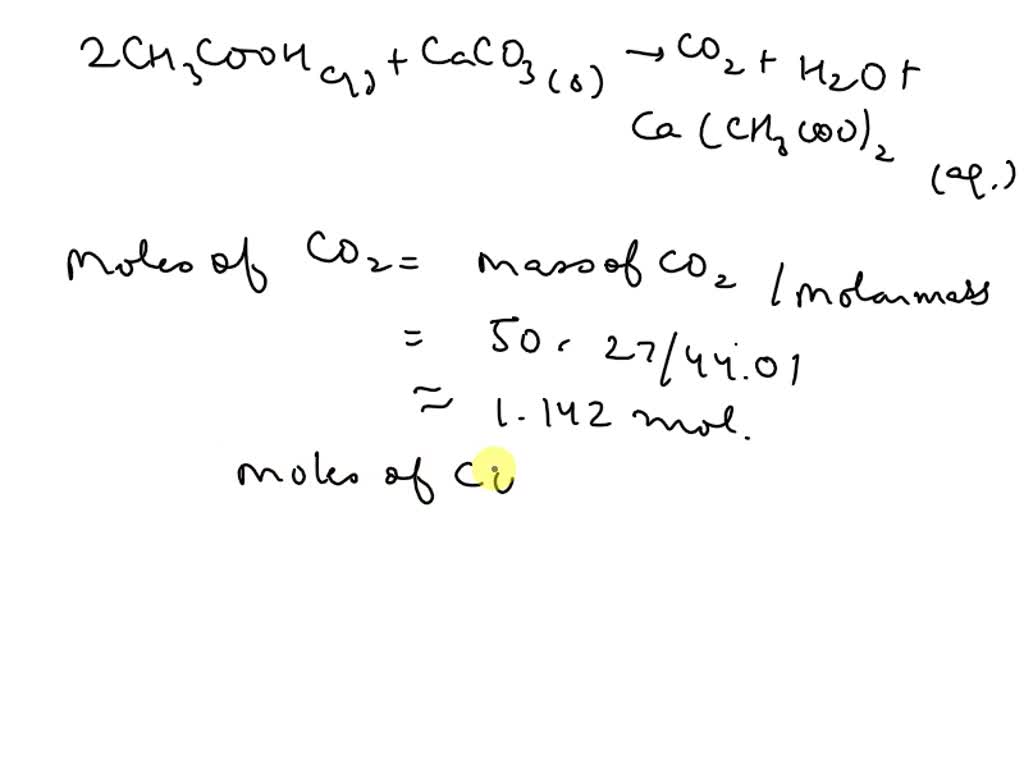 2CH₃COOH (q) + CaCO₃ (s) → CO₂ + H₂O +
Ca (CH₃COO)₂ (aq.)
Moles of CO₂ = mass of CO₂ / molar mass
= 50. 27/44.01
≈ 1.142 mol.
moles of Ci